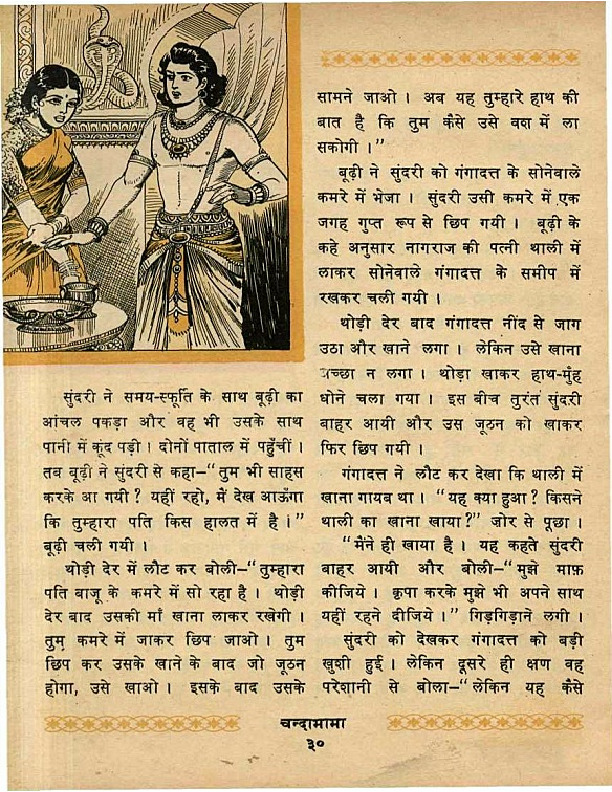 सुंदरी ने समय-स्फूर्ति के साथ बूढ़ी का
आंचल पकड़ा और वह भी उसके साथ
पानी में कूंद पड़ी। दोनों पाताल में पहुँचीं।
तब बूढ़ी ने सुंदरी से कहा–“तुम भी साहस
करके आ गयी? यहीं रहो, मैं देख आऊँगा
कि तुम्हारा पति किस हालत में है।”
बूढ़ी चली गयी।
थोड़ी देर में लौट कर बोली–“तुम्हारा
पति बाजू के कमरे में सो रहा है। थोड़ी
देर बाद उसकी माँ खाना लाकर रखेगी।
तुम कमरे में जाकर छिप जाओ। तुम
छिप कर उसके खाने के बाद जो जूठन
होगा, उसे खाओ। इसके बाद उसके
सामने जाओ। अब यह तुम्हारे हाथ की
बात है कि तुम कैसे उसे वश में ला
सकोगी।”
बूढ़ी ने सुंदरी को गंगादत्त के सोनेवाले
कमरे में भेजा। सुंदरी उसी कमरे में एक
जगह गुप्त रूप से छिप गयी। बूढ़ी के
कहे अनुसार नागराज की पत्नी थाली में
लाकर सोनेवाले गंगादत्त के समीप में
रखकर चली गयी।
थोड़ी देर बाद गंगादत्त नींद से जाग
उठा और खाने लगा। लेकिन उसे खाना
अच्छा न लगा। थोड़ा खाकर हाथ-मुँह
धोने चला गया। इस बीच तुरंत सुंदरी
बाहर आयी और उस जूठन को खाकर
फिर छिप गयी।
गंगादत्त ने लौट कर देखा कि थाली में
खाना गायब था। “यह क्या हुआ? किसने
थाली का खाना खाया?” जोर से पूछा।
“मैंने ही खाया है। यह कहते सुंदरी
बाहर आयी और बोली–“मुझे माफ़
कीजिये। कृपा करके मुझे भी अपने साथ
यहीं रहने दीजिये।” गिड़गिड़ाने लगी।
सुंदरी को देखकर गंगादत्त को बड़ी
खुशी हुई। लेकिन दूसरे ही क्षण वह
परेशानी से बोला–“लेकिन यह कैसे
चन्दामामा
३०